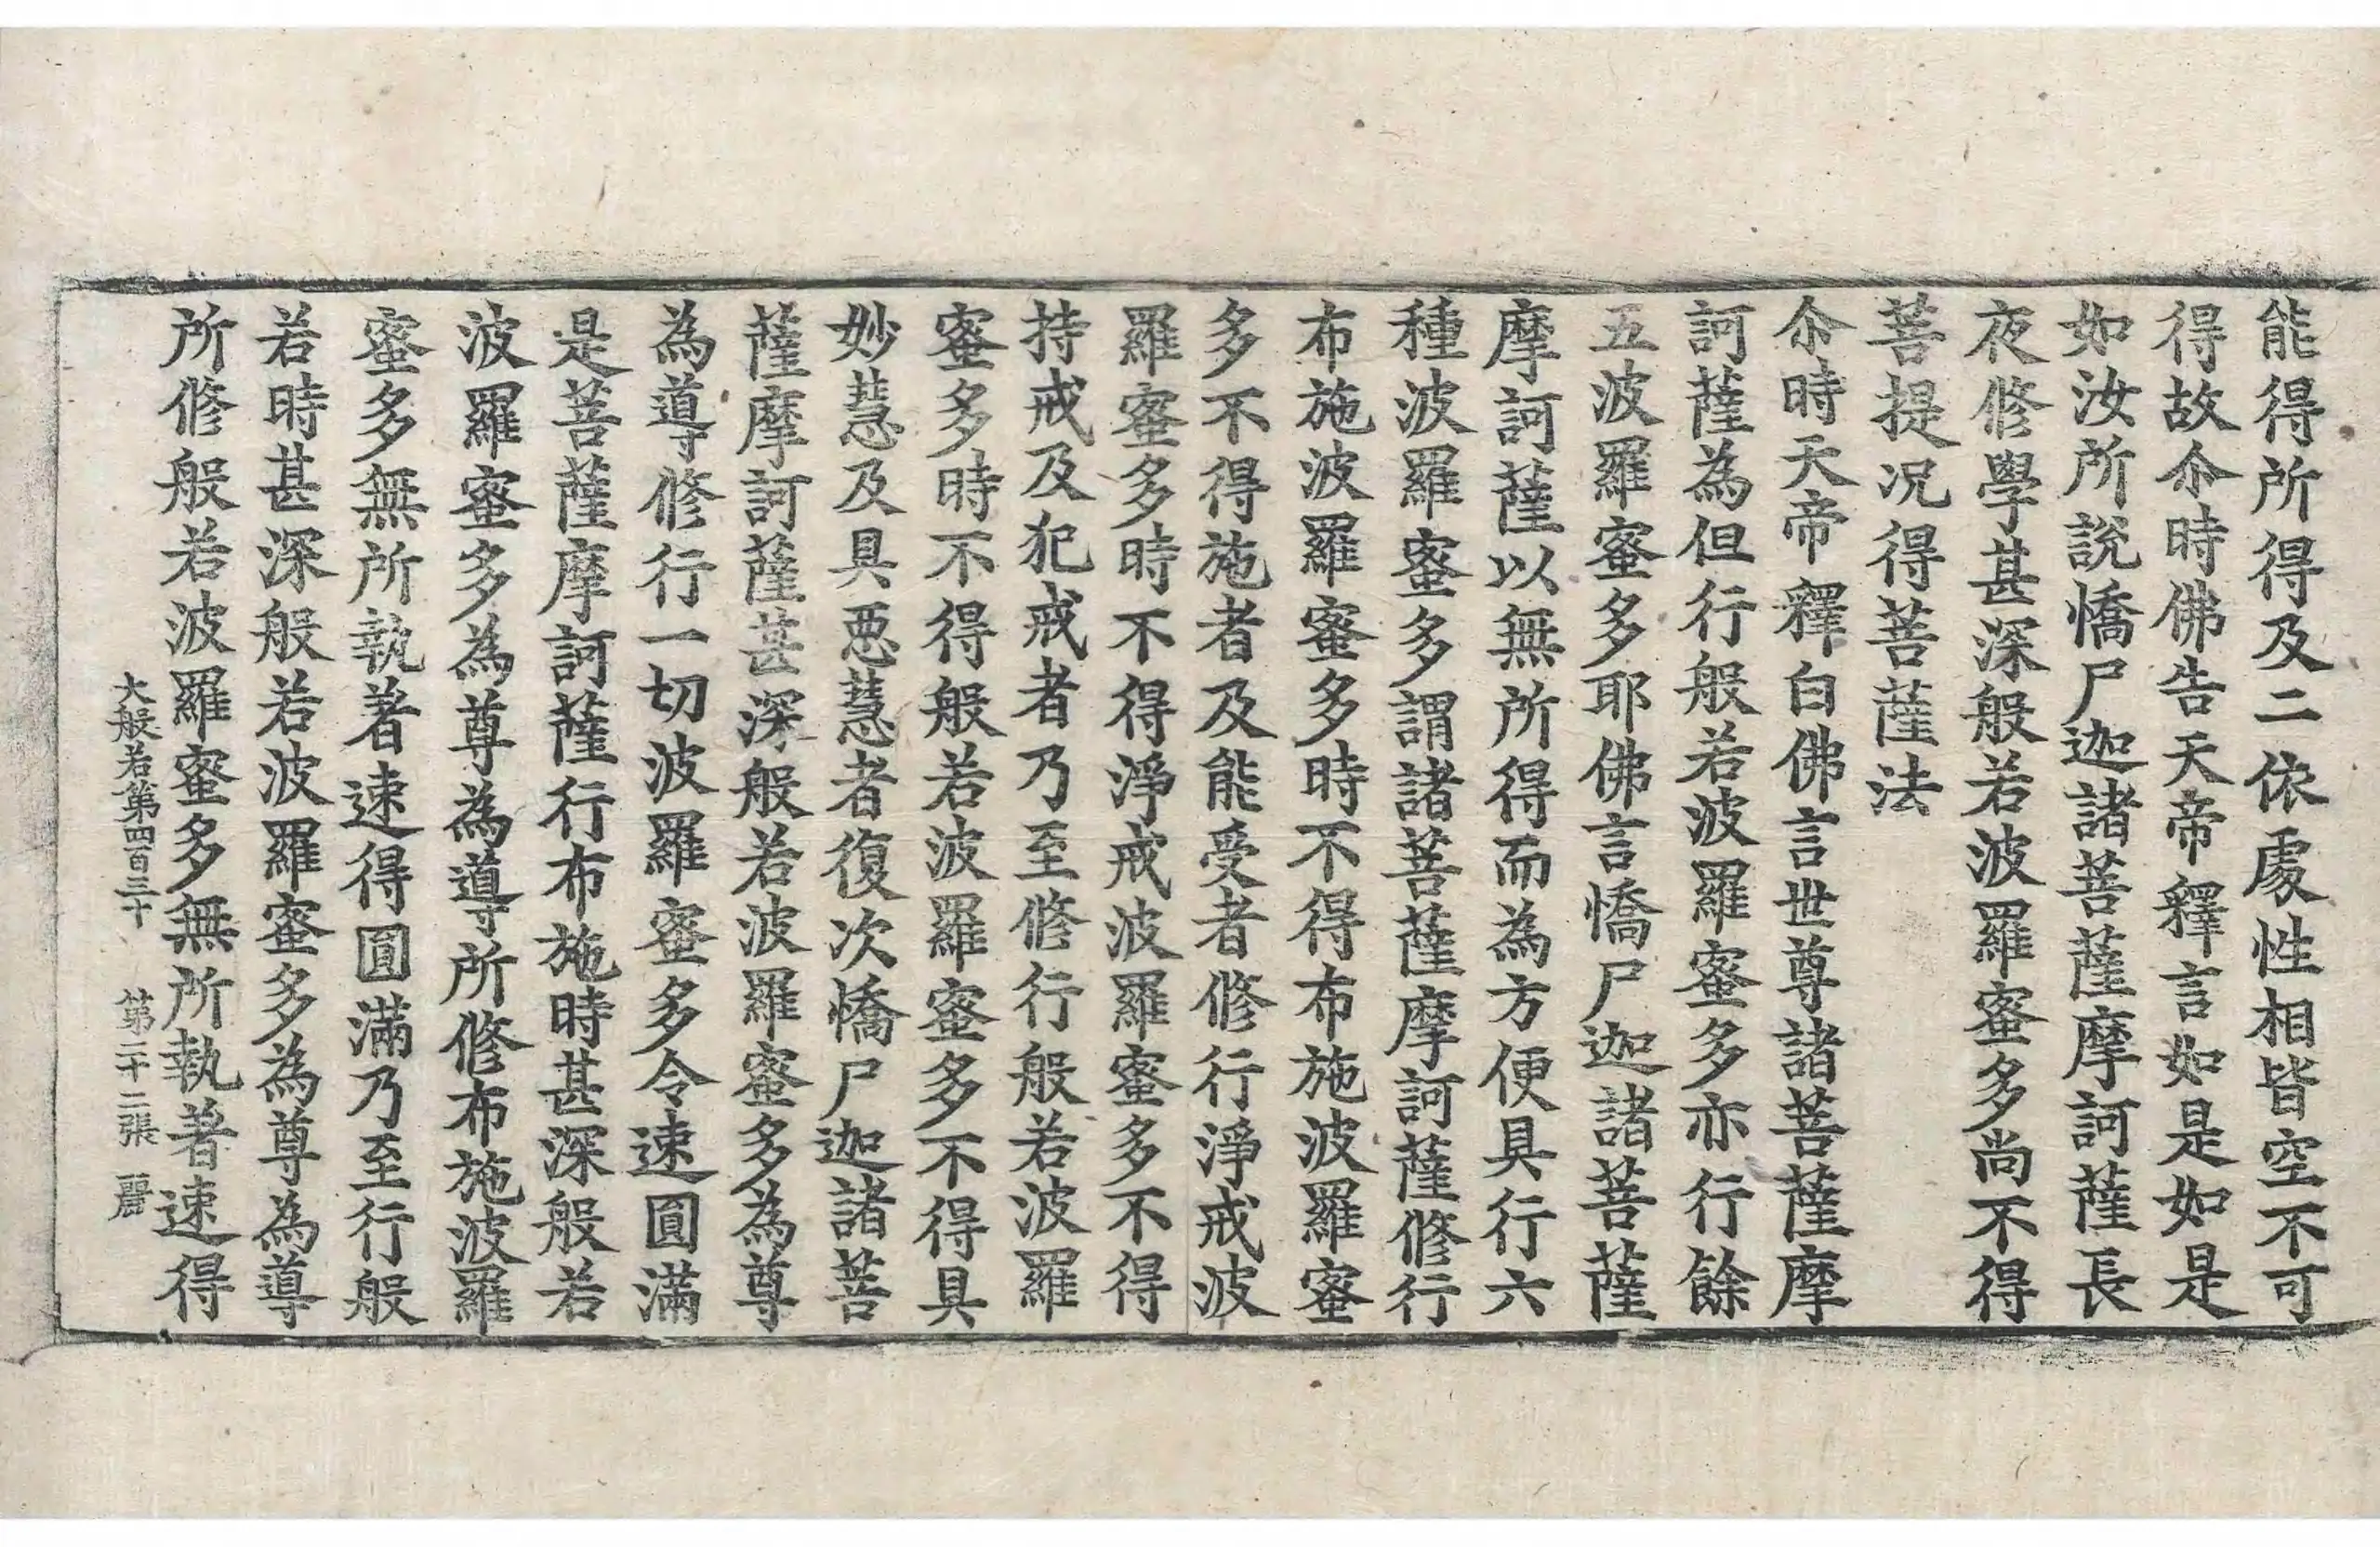 能得所得及二依處性相皆空不可
得故尒時佛告天帝釋言如是如是
如汝所說憍尸迦諸菩薩摩訶薩長
夜修學甚深般若波羅蜜多尚不得
菩提況得菩薩法
尒時天帝釋白佛言世尊諸菩薩摩
訶薩為但行般若波羅蜜多亦行餘
五波羅蜜多耶佛言憍尸迦諸菩薩
摩訶薩以無所得而為方便具行六
種波羅蜜多謂諸菩薩摩訶薩修行
布施波羅蜜多時不得布施波羅蜜
多不得施者及能受者修行淨戒波
羅蜜多時不得淨戒波羅蜜多不得
持戒及犯戒者乃至修行般若波羅
蜜多時不得般若波羅蜜多不得具
妙慧及具惡慧者復次憍尸迦諸菩
薩摩訶薩甚深般若波羅蜜多為尊
為導修行一切波羅蜜多令速圓滿
是菩薩摩訶薩行布施時甚深般若
波羅蜜多為尊為導所修布施波羅
蜜多無所執著速得圓滿乃至行般
若時甚深般若波羅蜜多為尊為導
所修般若波羅蜜多無所執著速得
大般若第四百三十 第二十二張 麗